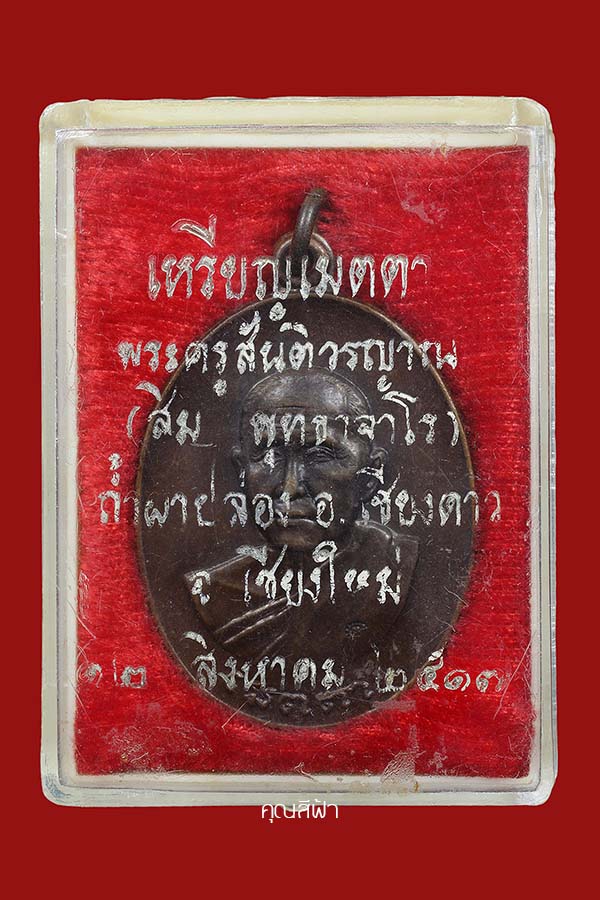 เหรียญเมตตา
พระครูสันติวรญาณ
(สิม พุทธาจาโร)
ถ้ำผาปล่อง อ. เชียงดาว
จ เชียงใหม่
๑๒ สิงหาคม ๒๕๑๗
คุณสีฟ้า